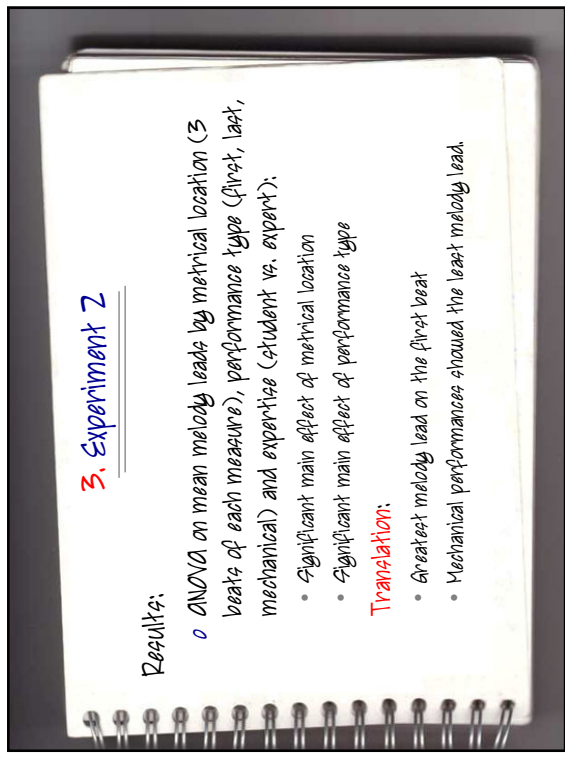 3. Experiment 2
Results:
o ANOVA on mean melody leads by metrical location (3
beats of each measure), performance type (first, last,
mechanical) and expertise (student vs. expert):
• Significant main effect of metrical location
• Significant main effect of performance type
Translation:
• Greatest melody lead on the first beat
• Mechanical performances showed the least melody lead.